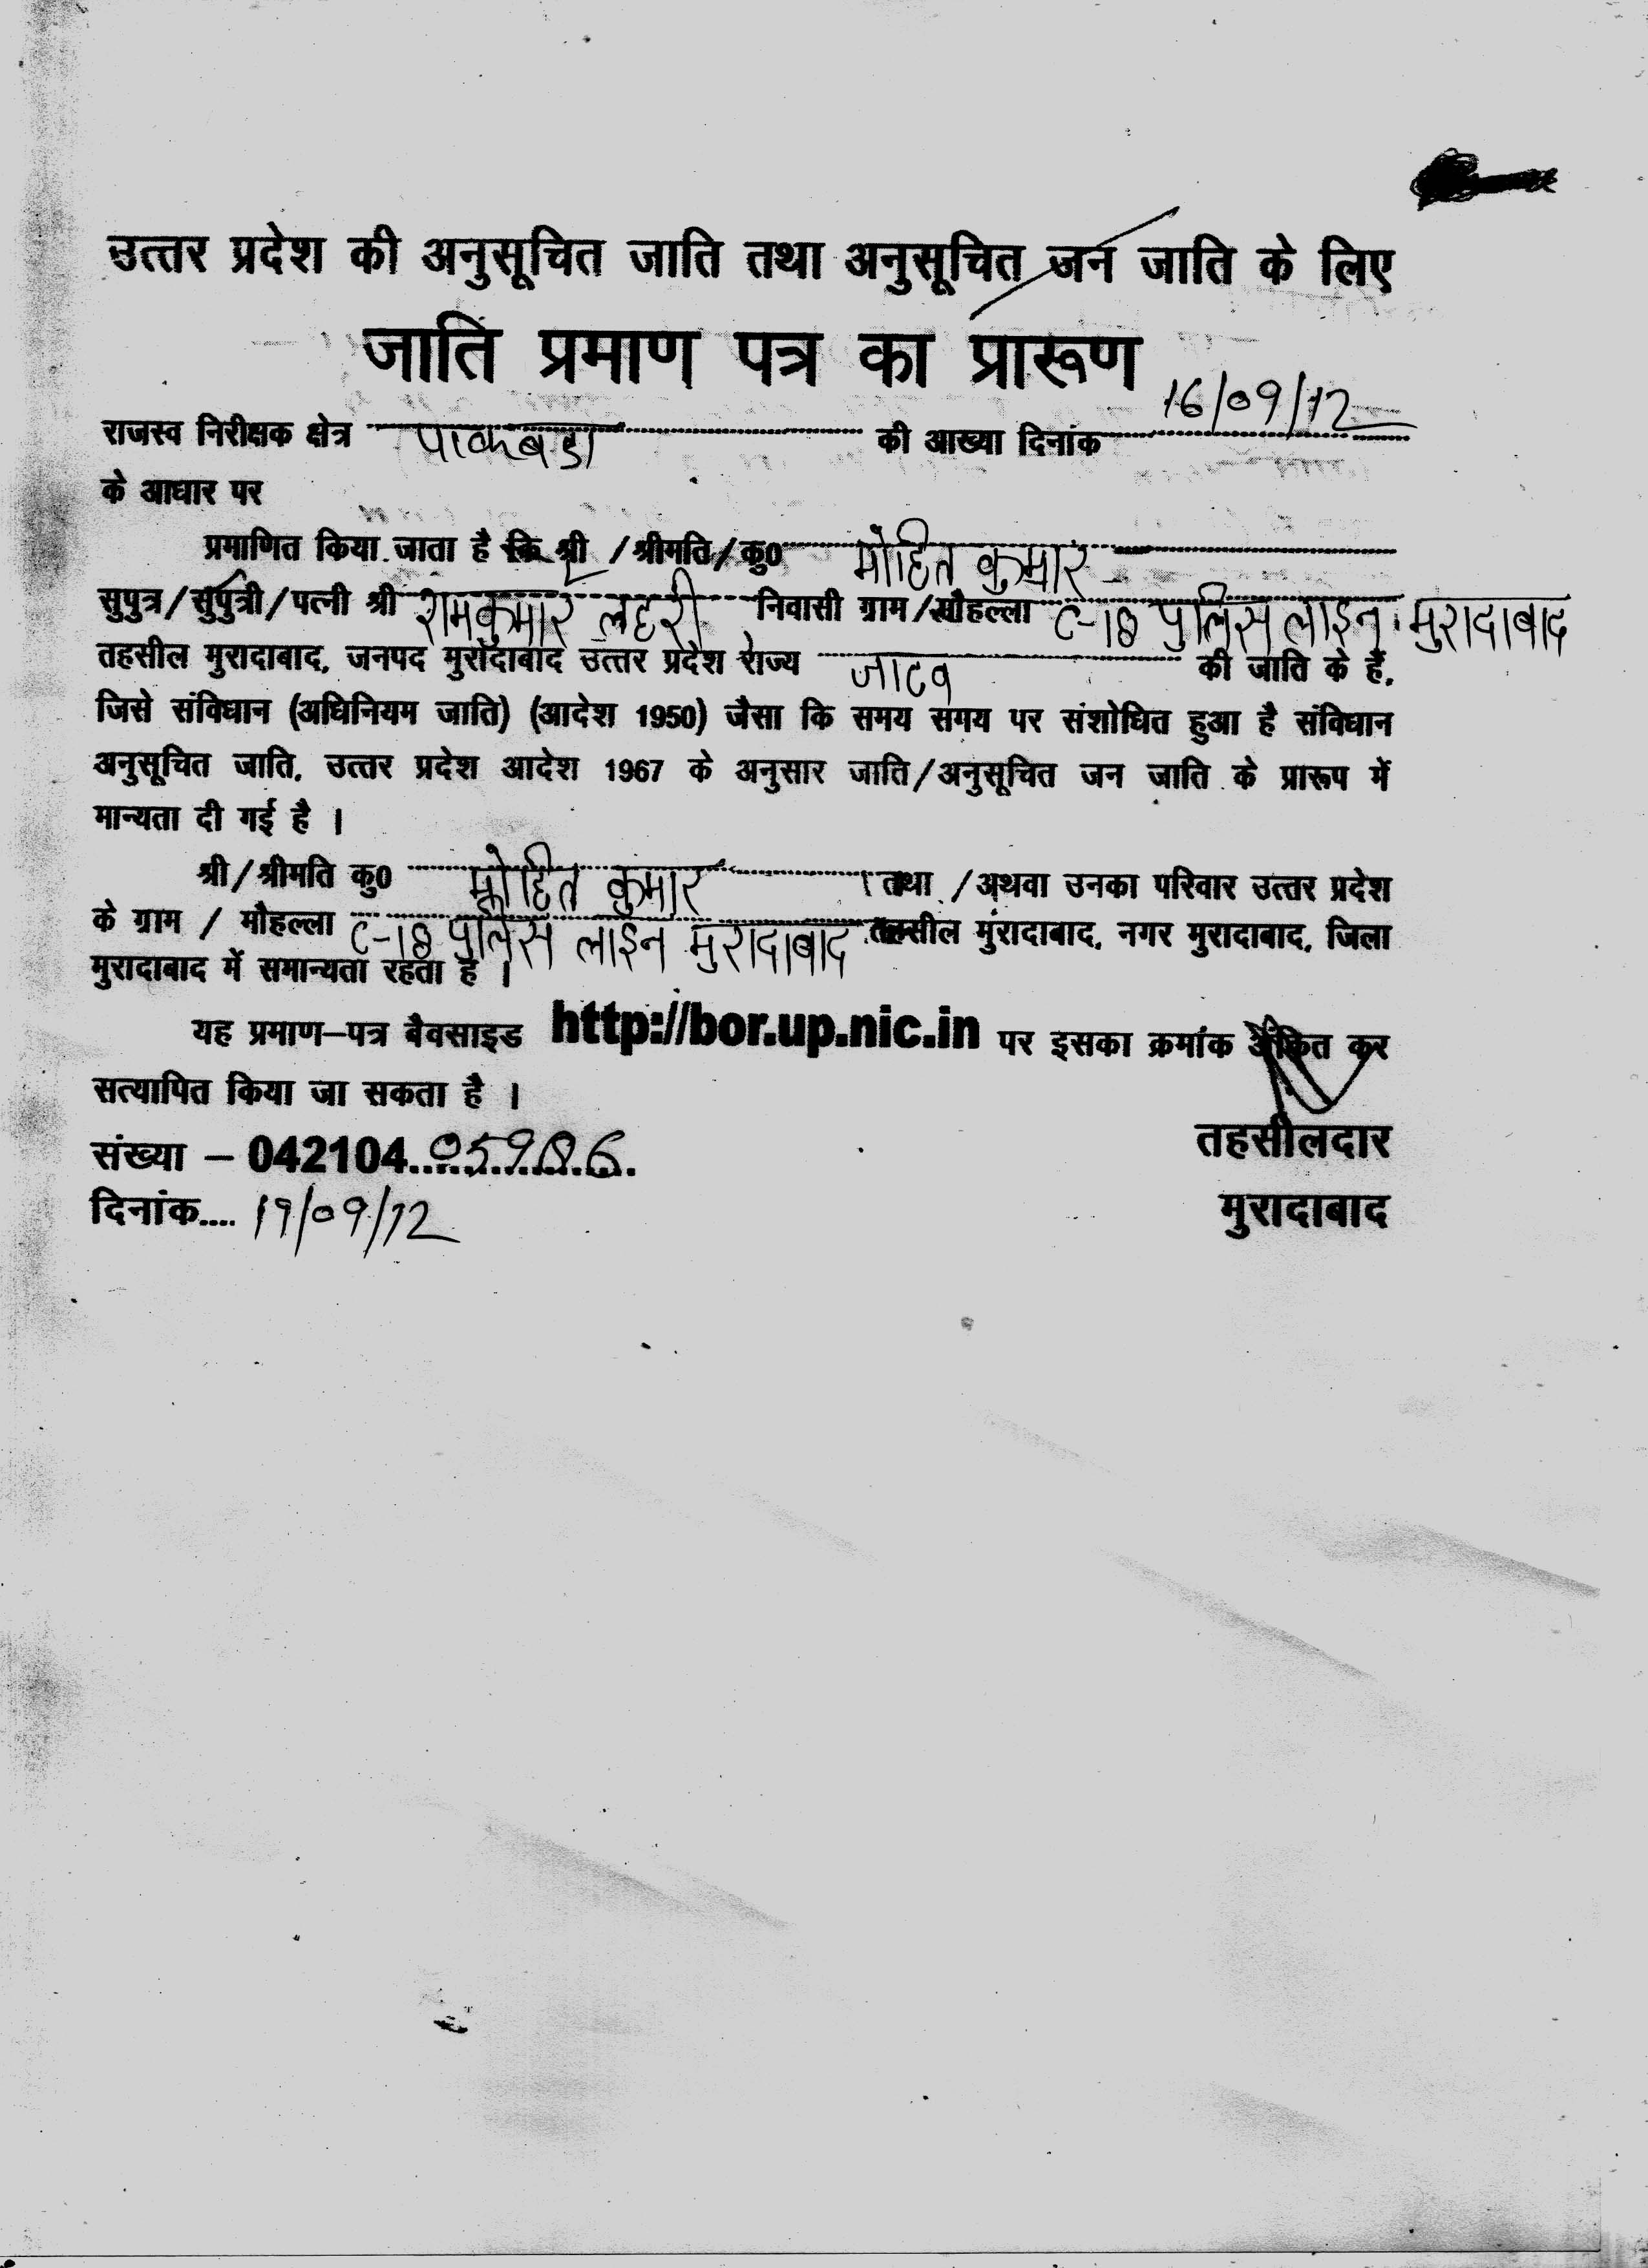 उत्तर प्रदेश की अनुसूचित जाति तथा अनुसूचित जन जाति के लिए
जाति प्रमाण पत्र का प्रारूण
राजस्व निरीक्षक क्षेत्र पाकबडा की आख्या दिनांक 16/09/12
के आधार पर
प्रमाणित किया जाता है कि श्री / श्रीमति / कु0 मोहित कुमार
सुपुत्र/सुपुत्री/पत्नी श्री रामकुमार लहरी निवासी ग्राम/मौहल्ला C-18 पुलिस लाइन मुरादाबाद
तहसील मुरादाबाद, जनपद मुरादाबाद उत्तर प्रदेश राज्य जाटव की जाति के हैं,
जिसे संविधान (अधिनियम जाति) (आदेश 1950) जैसा कि समय समय पर संशोधित हुआ है संविधान
अनुसूचित जाति, उत्तर प्रदेश आदेश 1967 के अनुसार जाति/अनुसूचित जन जाति के प्रारूप में
मान्यता दी गई है ।
श्री/श्रीमति कु0 मोहित कुमार तथा / अथवा उनका परिवार उत्तर प्रदेश
के ग्राम / मौहल्ला C-18 पुलिस लाइन मुरादाबाद तहसील मुरादाबाद, नगर मुरादाबाद, जिला
मुरादाबाद में समान्यता रहता है ।
यह प्रमाण–पत्र बैवसाइड http://bor.up.nic.in पर इसका क्रमांक अंकित कर
सत्यापित किया जा सकता है ।
तहसीलदार
संख्या – 042104
दिनांक.... 19/09/12
मुरादाबाद